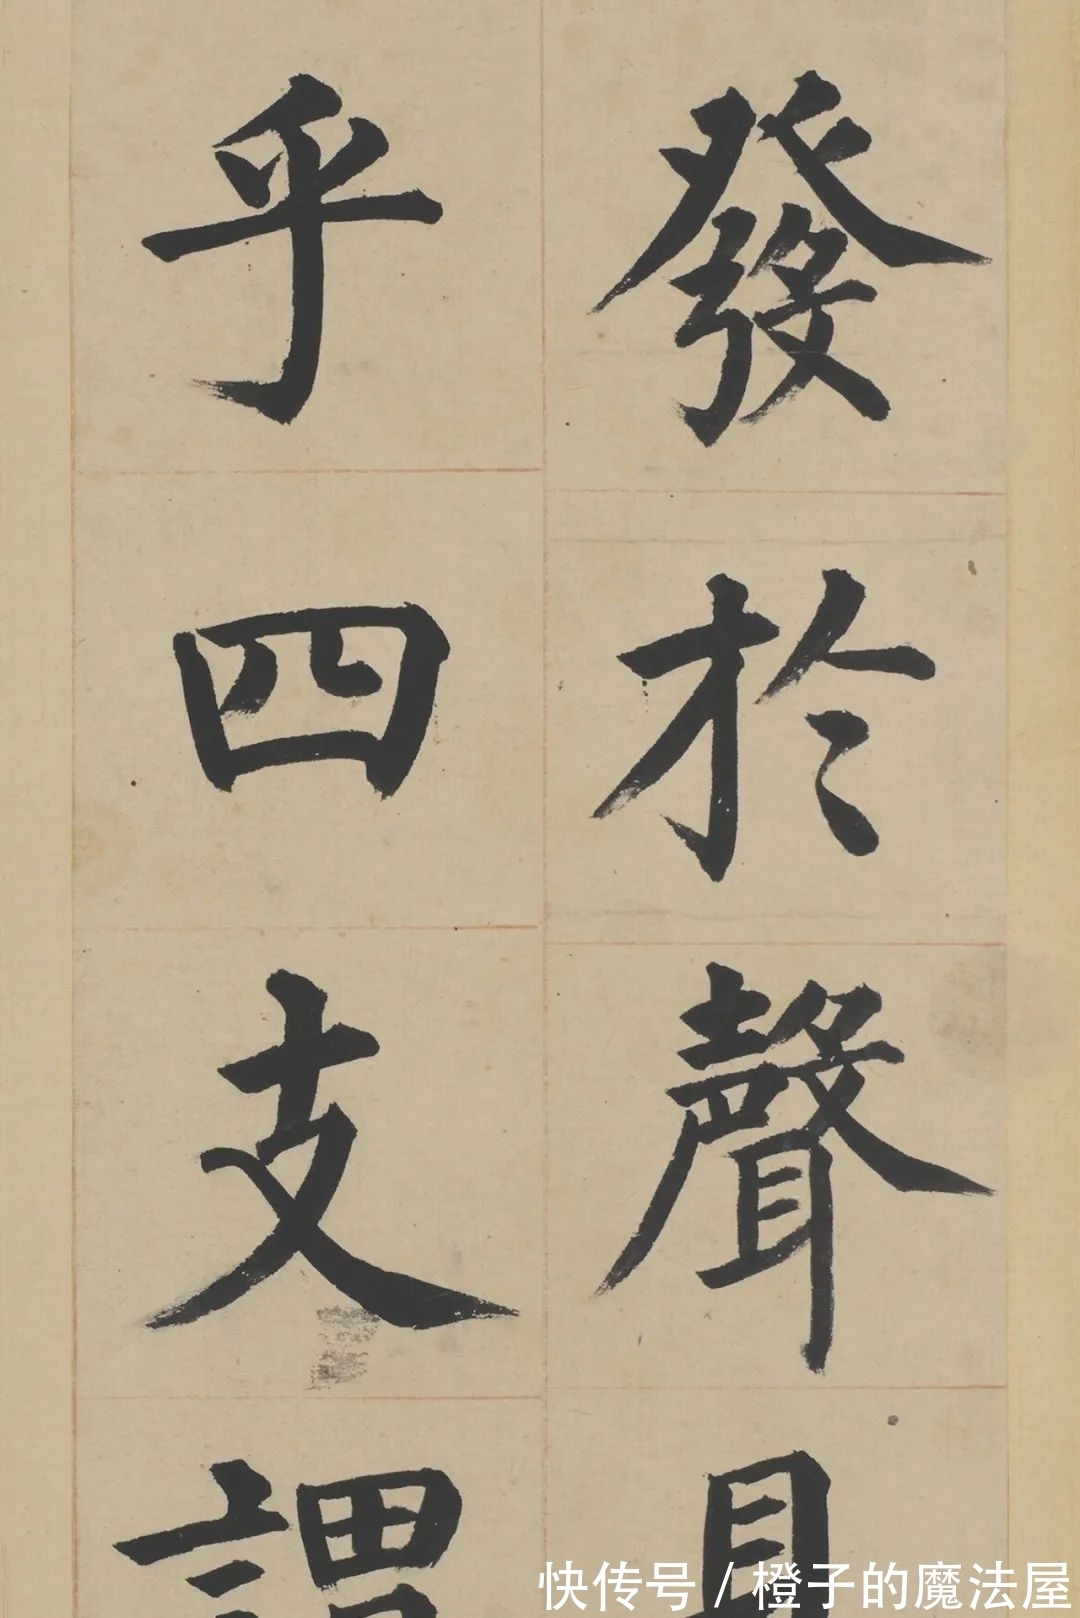 發於聲見
乎四支謂
快传号 / 橙子的魔法屋